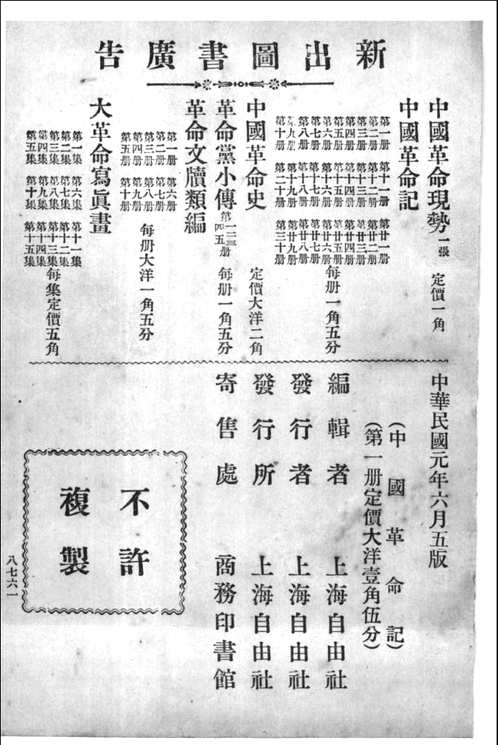 新出圖書廣告
中國革命現勢 一張 定價一角
中國革命記
第一册 第十一册 第廿一册
第二册 第十二册 第廿二册
第三册 第十三册 第廿三册
第四册 第十四册 第廿四册
第五册 第十五册 第廿五册
第六册 第十六册 第廿六册 每册一角五分
第七册 第十七册 第廿七册
第八册 第十八册 第廿八册
第九册 第十九册 第廿九册
第十册 第二十册 第三十册
中國革命史 定價大洋二角
革命黨小傳 第一二三四五册 每册一角五分
革命文牘類編
第一册 第六册
第二册 第七册
第三册 第八册 每册大洋一角五分
第四册 第九册
第五册 第十册
大革命寫眞畫
第一集 第六集 第十一集
第二集 第七集 第十二集
第三集 第八集 第十三集 每集定價五角
第四集 第九集 第十四集
第五集 第十集 第十五集
中華民國元年六月五版
(中國革命記)
(第一册定價大洋壹角伍分)
編輯者 上海自由社
發行者 上海自由社
發行所 上海自由社
寄售處 商務印書館
不許
複製
八七六一